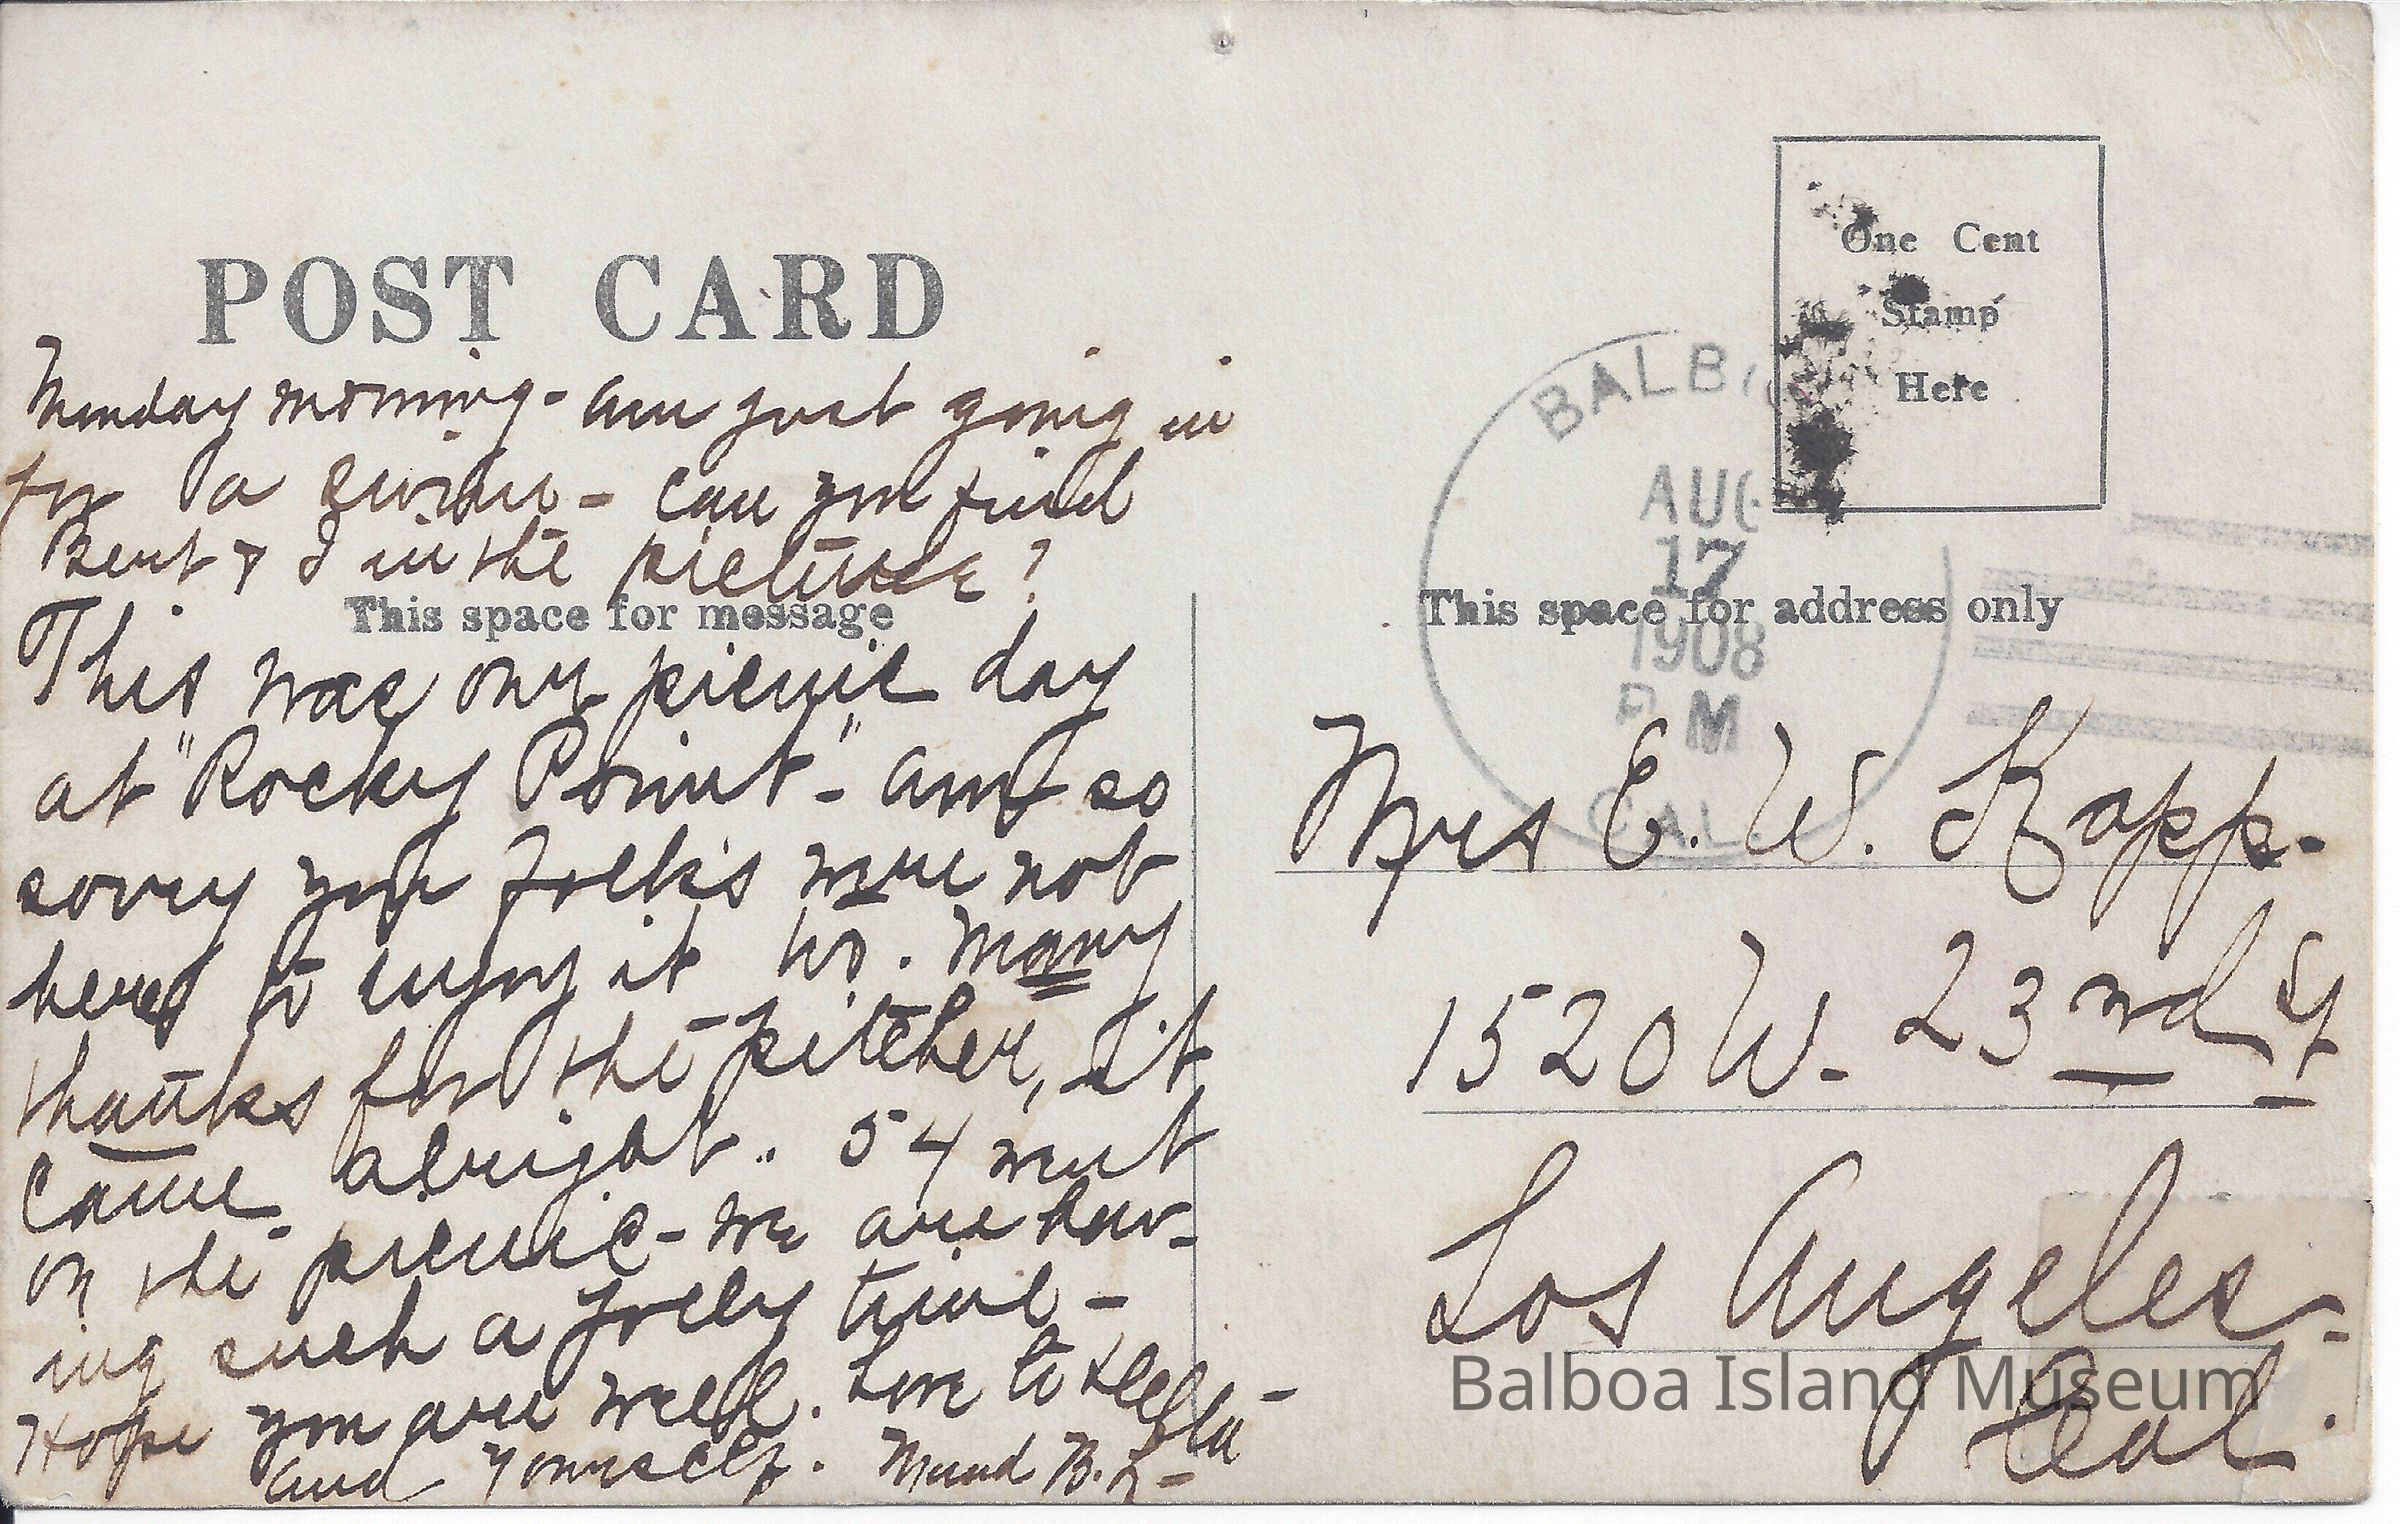 POST CARD
Monday morning - am just going in
for a swim - can you find
Bert & I in the picture?
This space for message
This was our picnic day
at "Rocky Point" - am so
sorry you folks were not
here to enjoy it too. Many
thanks for the pitcher, it
came alright. 54 went
on the picnic - we are hav-
ing such a jolly time -
Hope you are well. Love to
and yourself. Maud B. L-
One Cent
Stamp
Here
BALBOA
AUG
17
1908
P M
CAL.
This space for address only
Mrs E. W. Kopp.
1520 W. 23rd St
Los Angeles-
Cal.
Balboa Island Museum